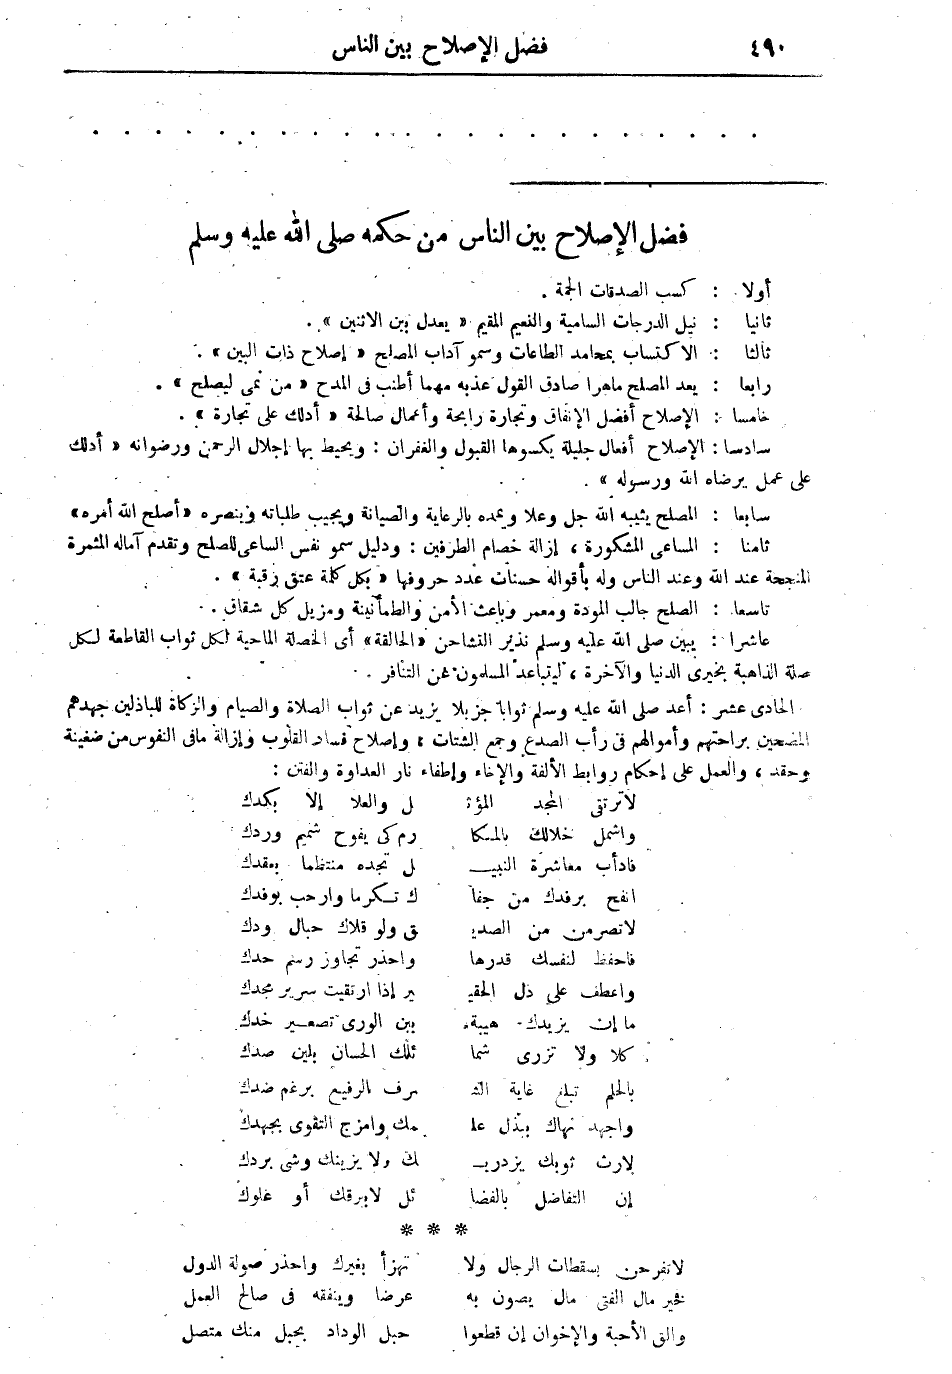 ٤٩٠ فضل الإصلاح بين الناس
. . . . . . . . . . . . . . . . . . . . . .
فضل الإصلاح بين الناس من حكمه صلى الله عليه وسلم
أولا : كسب الصدقات الجمة .
ثانيا : نيل الدرجات السامية والنعيم المقيم « يعدل بين الاثنين » .
ثالثا : الاكتساب بمحامد الطاعات وسمو آداب المصلح « إصلاح ذات البين » .
رابعا : يعد المصلح ماهرا صادق القول عذبه مهما أطنب فى المدح « من نمى ليصلح » .
خامسا : الإصلاح أفضل الإنفاق وتجارة رابحة وأعمال صالحة « أدلك على تجارة » .
سادسا : الإصلاح أفعال جليلة يكسوها القبول والغفران : ويحيط بها إجلال الرحمن ورضوانه « أدلك
على عمل يرضاه الله ورسوله » .
سابعا : المصلح يثيبه الله جل وعلا ويمده بالرعاية والصيانة ويجيب طلباته وينصره «أصلح الله أمره»
ثامنا : المساعى المشكورة ، إزالة خصام الطرفين : ودليل سمو نفس الساعى للصلح وتقدم آماله المثمرة
المنجحة عند الله وعند الناس وله بأقواله حسنات عدد حروفها « بكل كلمة عتق رقبة » .
تاسعا : الصلح جالب المودة ومعمر وباعث الأمن والطمأنينة ومزيل كل شقاق .
عاشرا : يبين صلى الله عليه وسلم نذير التشاحن «الحالقة» أى الخصلة الماحية لكل ثواب القاطعة لكل
صلة الذاهبة بخيرى الدنيا والآخرة ، ليتباعد المسلمون عن التنافر .
الحادى عشر : أعد صلى الله عليه وسلم ثوابا جزيلا يزيد عن ثواب الصلاة والصيام والزكاة للباذلين جهدهم
المضحين براحتهم وأموالهم فى رأب الصدع وجمع الشتات ؛ وإصلاح فساد القلوب وإزالة مافى النفوس من ضغينة
وحقد ، والعمل على إحكام روابط الألفة والإخاء وإطفاء نار العداوة والفتن :
لاترتقى المجد المؤثـ ل والعلا إلا بكدك
واشمل خلالك بالمكا رم كى يفوح شميم وردك
فادأب معاشرة النبيـ ل تجده منتظما بعقدك
انفح برفدك من جفا ك تكرما وارحب بوفدك
لاتصرمن من الصديـ ق ولو قلاك حبال ودك
فاحفظ لنفسك قدرها واحذر تجاوز رسم حدك
واعطف على ذل الحقيـ ير إذا ارتقيت سرير مجدك
ما إن يزيدك هيبة بين الورى تصعير خدك
كلا ولا تزرى شما ئلك الحسان بلين صدك
بالحلم تبلغ غاية الشـ رف الرفيع برغم ضدك
واجهد نهاك ببذل علـ مك وامزج التقوى بجهدك
لارث ثوبك يزدريـ ك ولا يزينك وشى بردك
إن التفاضل بالفضا ئل لابرقك أو غلوك
* * *
لاتفرحن بسقطات الرجال ولا تهزأ بغيرك واحذر صولة الدول
فخير مال الفتى مال يصون به عرضا وينفقه فى صالح العمل
والق الأحبة والإخوان إن قطعوا حبل الوداد بحبل منك متصل